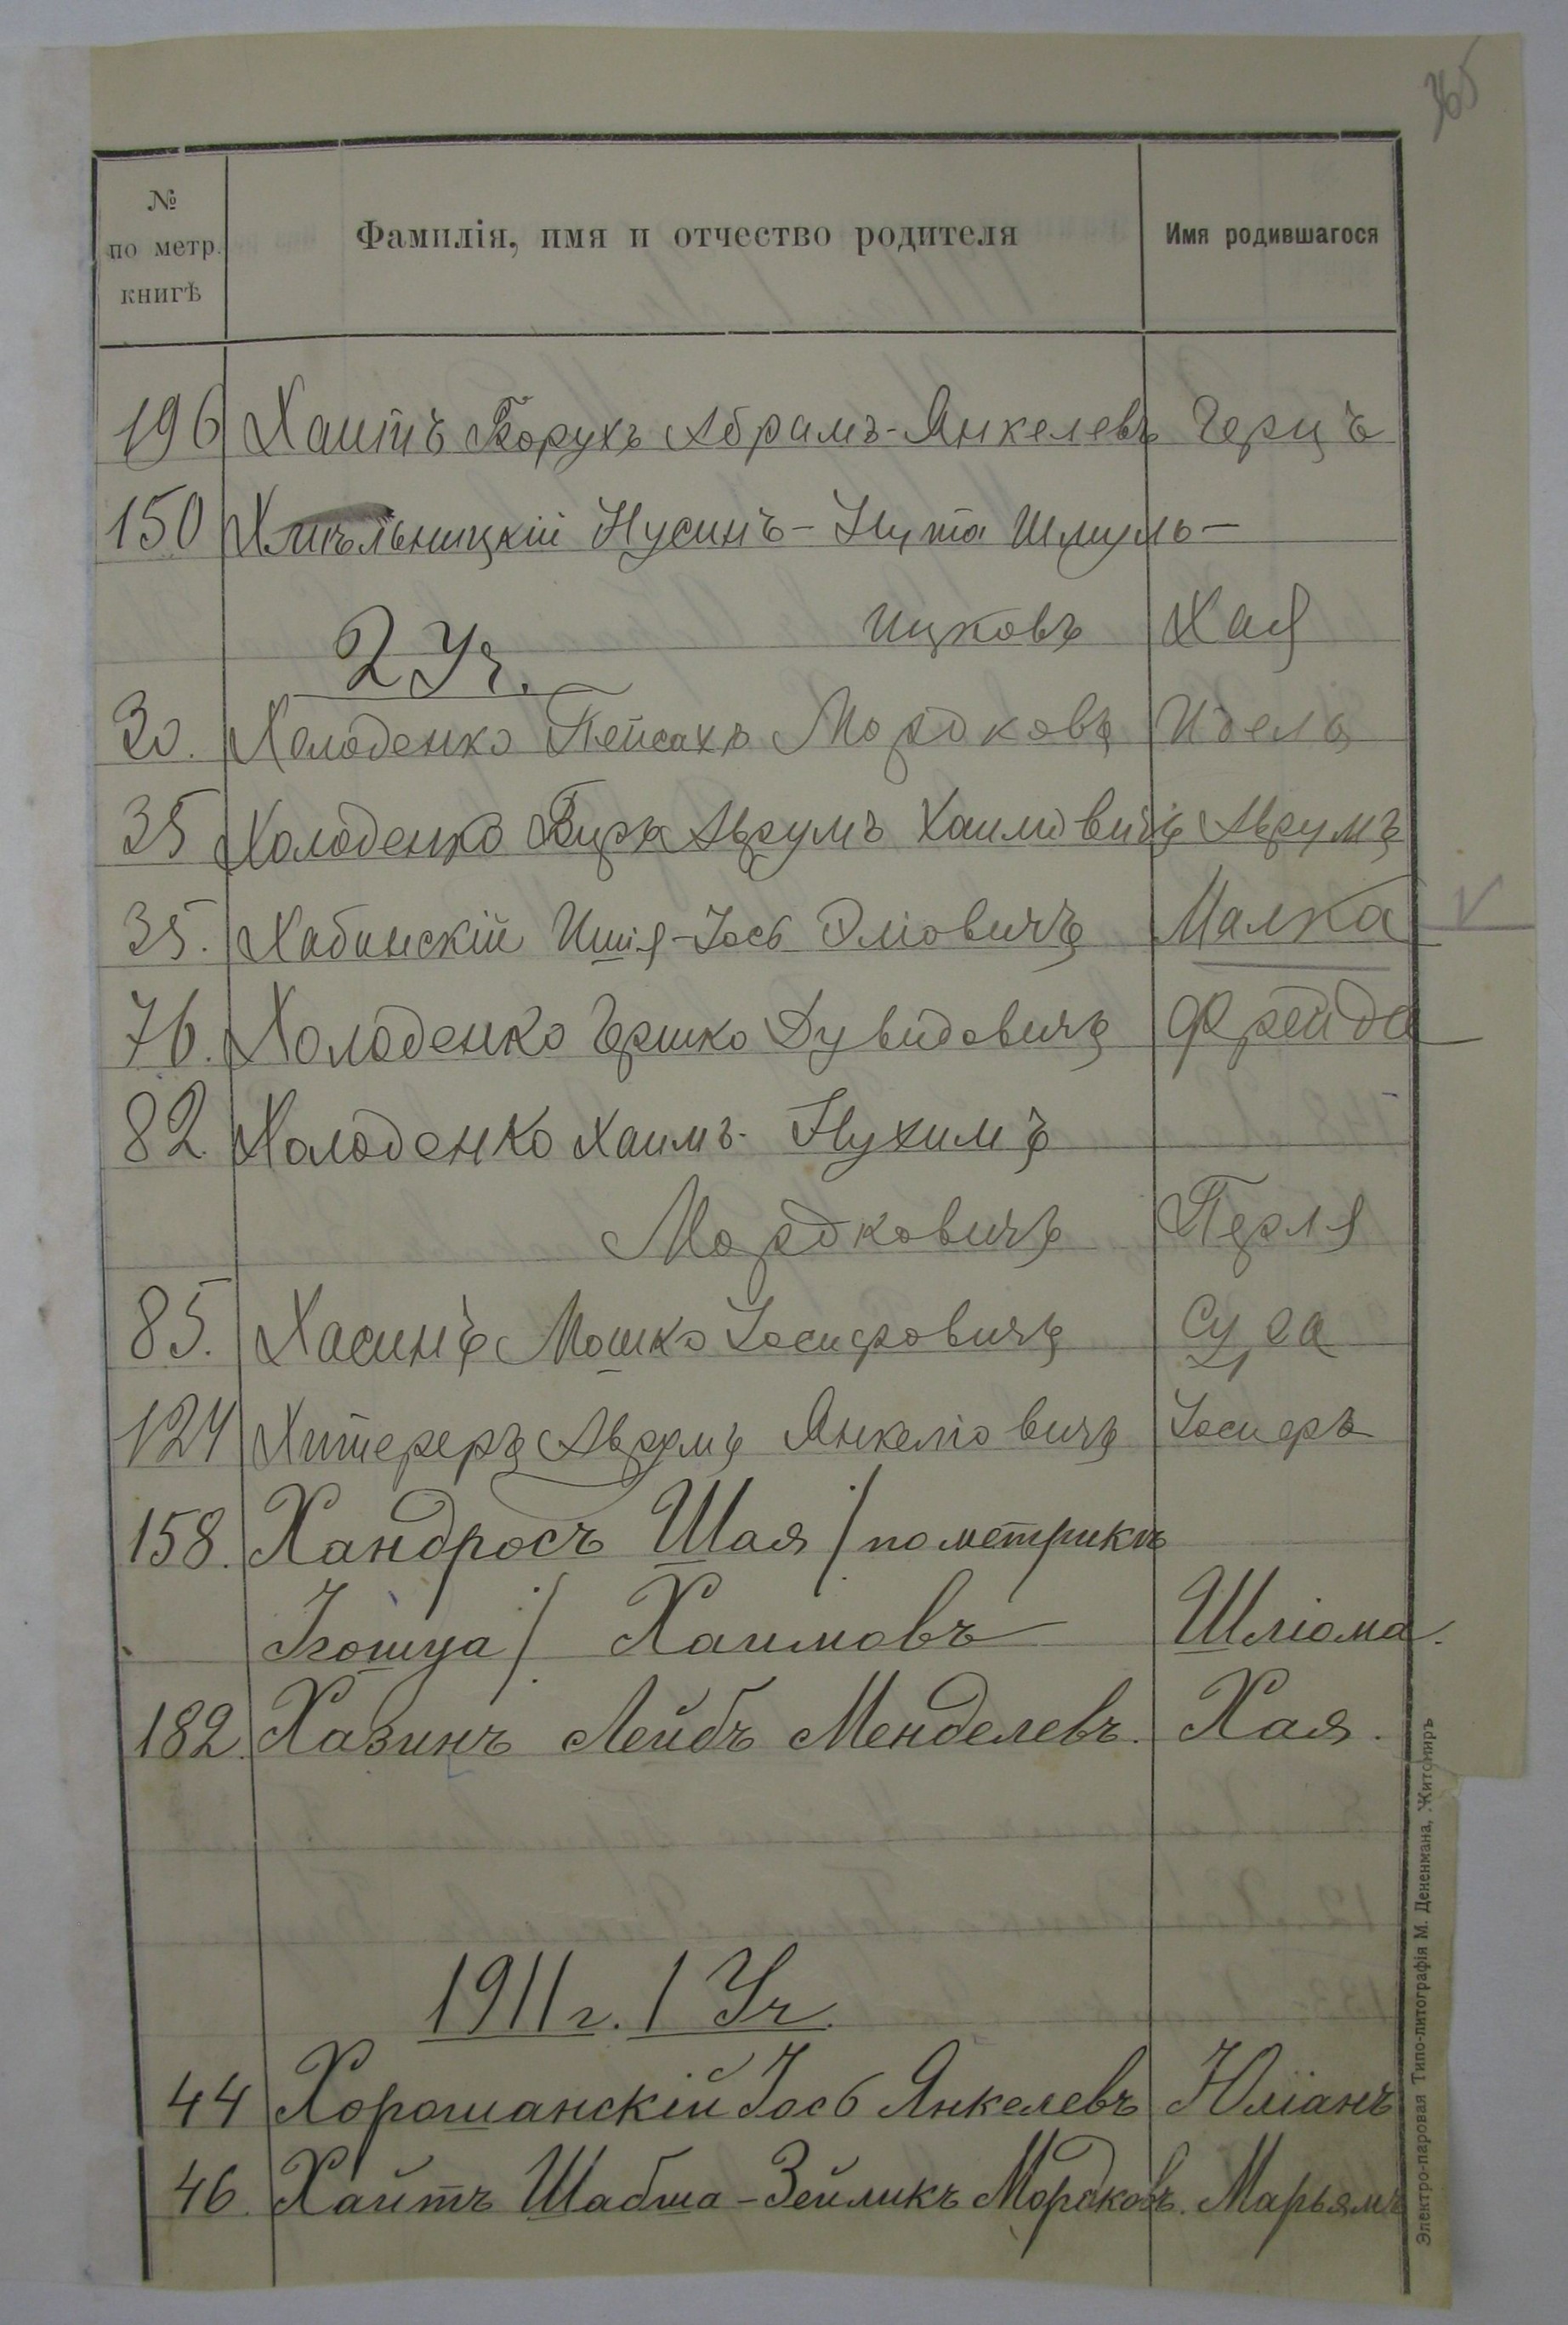 365
№ по метр. книгѣ
Фамилія, имя и отчество родителя
Имя родившагося
196 Хаитъ Борухъ Абрамъ-Янкелевъ Герцъ
150 Хмѣльницкій Нусинъ-Нута Шмуль-
Ицковъ Хая
2 Уч.
30. Холоденко Пейсахъ Мордковъ Идель
35 Холоденко Аврумъ Хаимовичъ Аврумъ
35. Хабинскій Ишія-Іось Эліовичъ Малка
76. Холоденко Гершко Дувидовичъ Фрейда
82. Холоденко Хаимъ-Нухимъ
Мордковичъ Перля
85. Хасинъ Мошко Іосифовичъ Сура
124 Хитереръ Аврумъ Янкеліовичъ Іосифъ
158. Хандросъ Шая /по метрикѣ
Ігошуа/ Хаимовъ Шліома.
182. Хазинъ Лейбъ Менделевъ. Хая.
1911 г. 1 Уч.
44 Хорошанскій Іось Янкелевъ Юліанъ
46. Хаитъ Шабша-Зейликъ Мордковъ. Марьямъ
Электро-паровая Типо-литографія М. Дененмана, Житомиръ